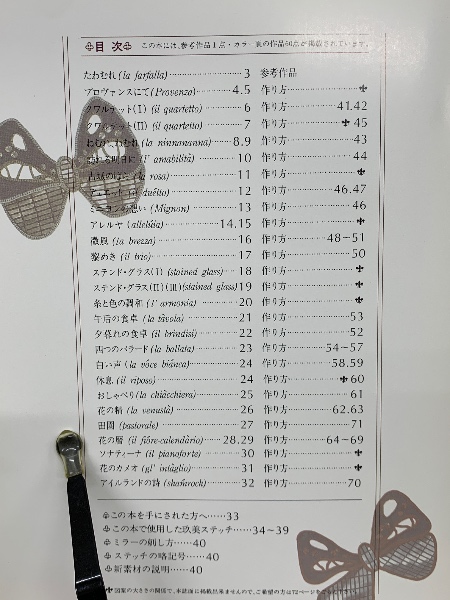 目次 この本には、参考作品1点・カラー頁の作品60点が掲載されています。
たわむれ (la farfalla) 3 参考作品
プロヴァンスにて (Provenza) 4.5 作り方
クワルテット(I) (il quartetto) 6 作り方 41.42
クワルテット(II) (il quartetto) 7 作り方 45
(la ninnananna) 8.9 作り方 43
明日に (l' amabilità) 10 作り方 44
(la rosa) 11 作り方
(duétto) 12 作り方 46.47
ミニヨンの想い (Mignon) 13 作り方 46
アレルヤ (allelúia) 14.15 作り方
微風 (la brezza) 16 作り方 48~51
黎めき (il trio) 17 作り方 50
ステンド・グラス(I) (stained glass) 18 作り方
ステンド・グラス(II)(III) (stained glass) 19 作り方
糸と色の調和 (l' armonia) 20 作り方
午后の食卓 (la tàvola) 21 作り方 53
夕暮れの食卓 (il brindisi) 22 作り方 52
四つのバラード (la ballata) 23 作り方 54~57
白い声 (la vóce biánca) 24 作り方 58.59
休息 (il riposo) 24 作り方 60
おしゃべり (la chiàcchiera) 25 作り方 61
花の精 (la venustà) 26 作り方 62.63
田園 (pastorale) 27 作り方 71
花の暦 (il fióre-calendàrio) 28.29 作り方 64~69
ソナティーナ (il pianoforte) 30 作り方
花のカメオ (gl' intàglio) 31 作り方
アイルランドの詩 (shamrock) 32 作り方 70
この本を手にされた方へ 33
この本で使用した玖美ステッチ 34~39
ミラーの刺し方 40
ステッチの略記号 40
新素材の説明 40
図案の大きさの関係で、本誌面に掲載出来ませんので、ご希望の方は72ページを